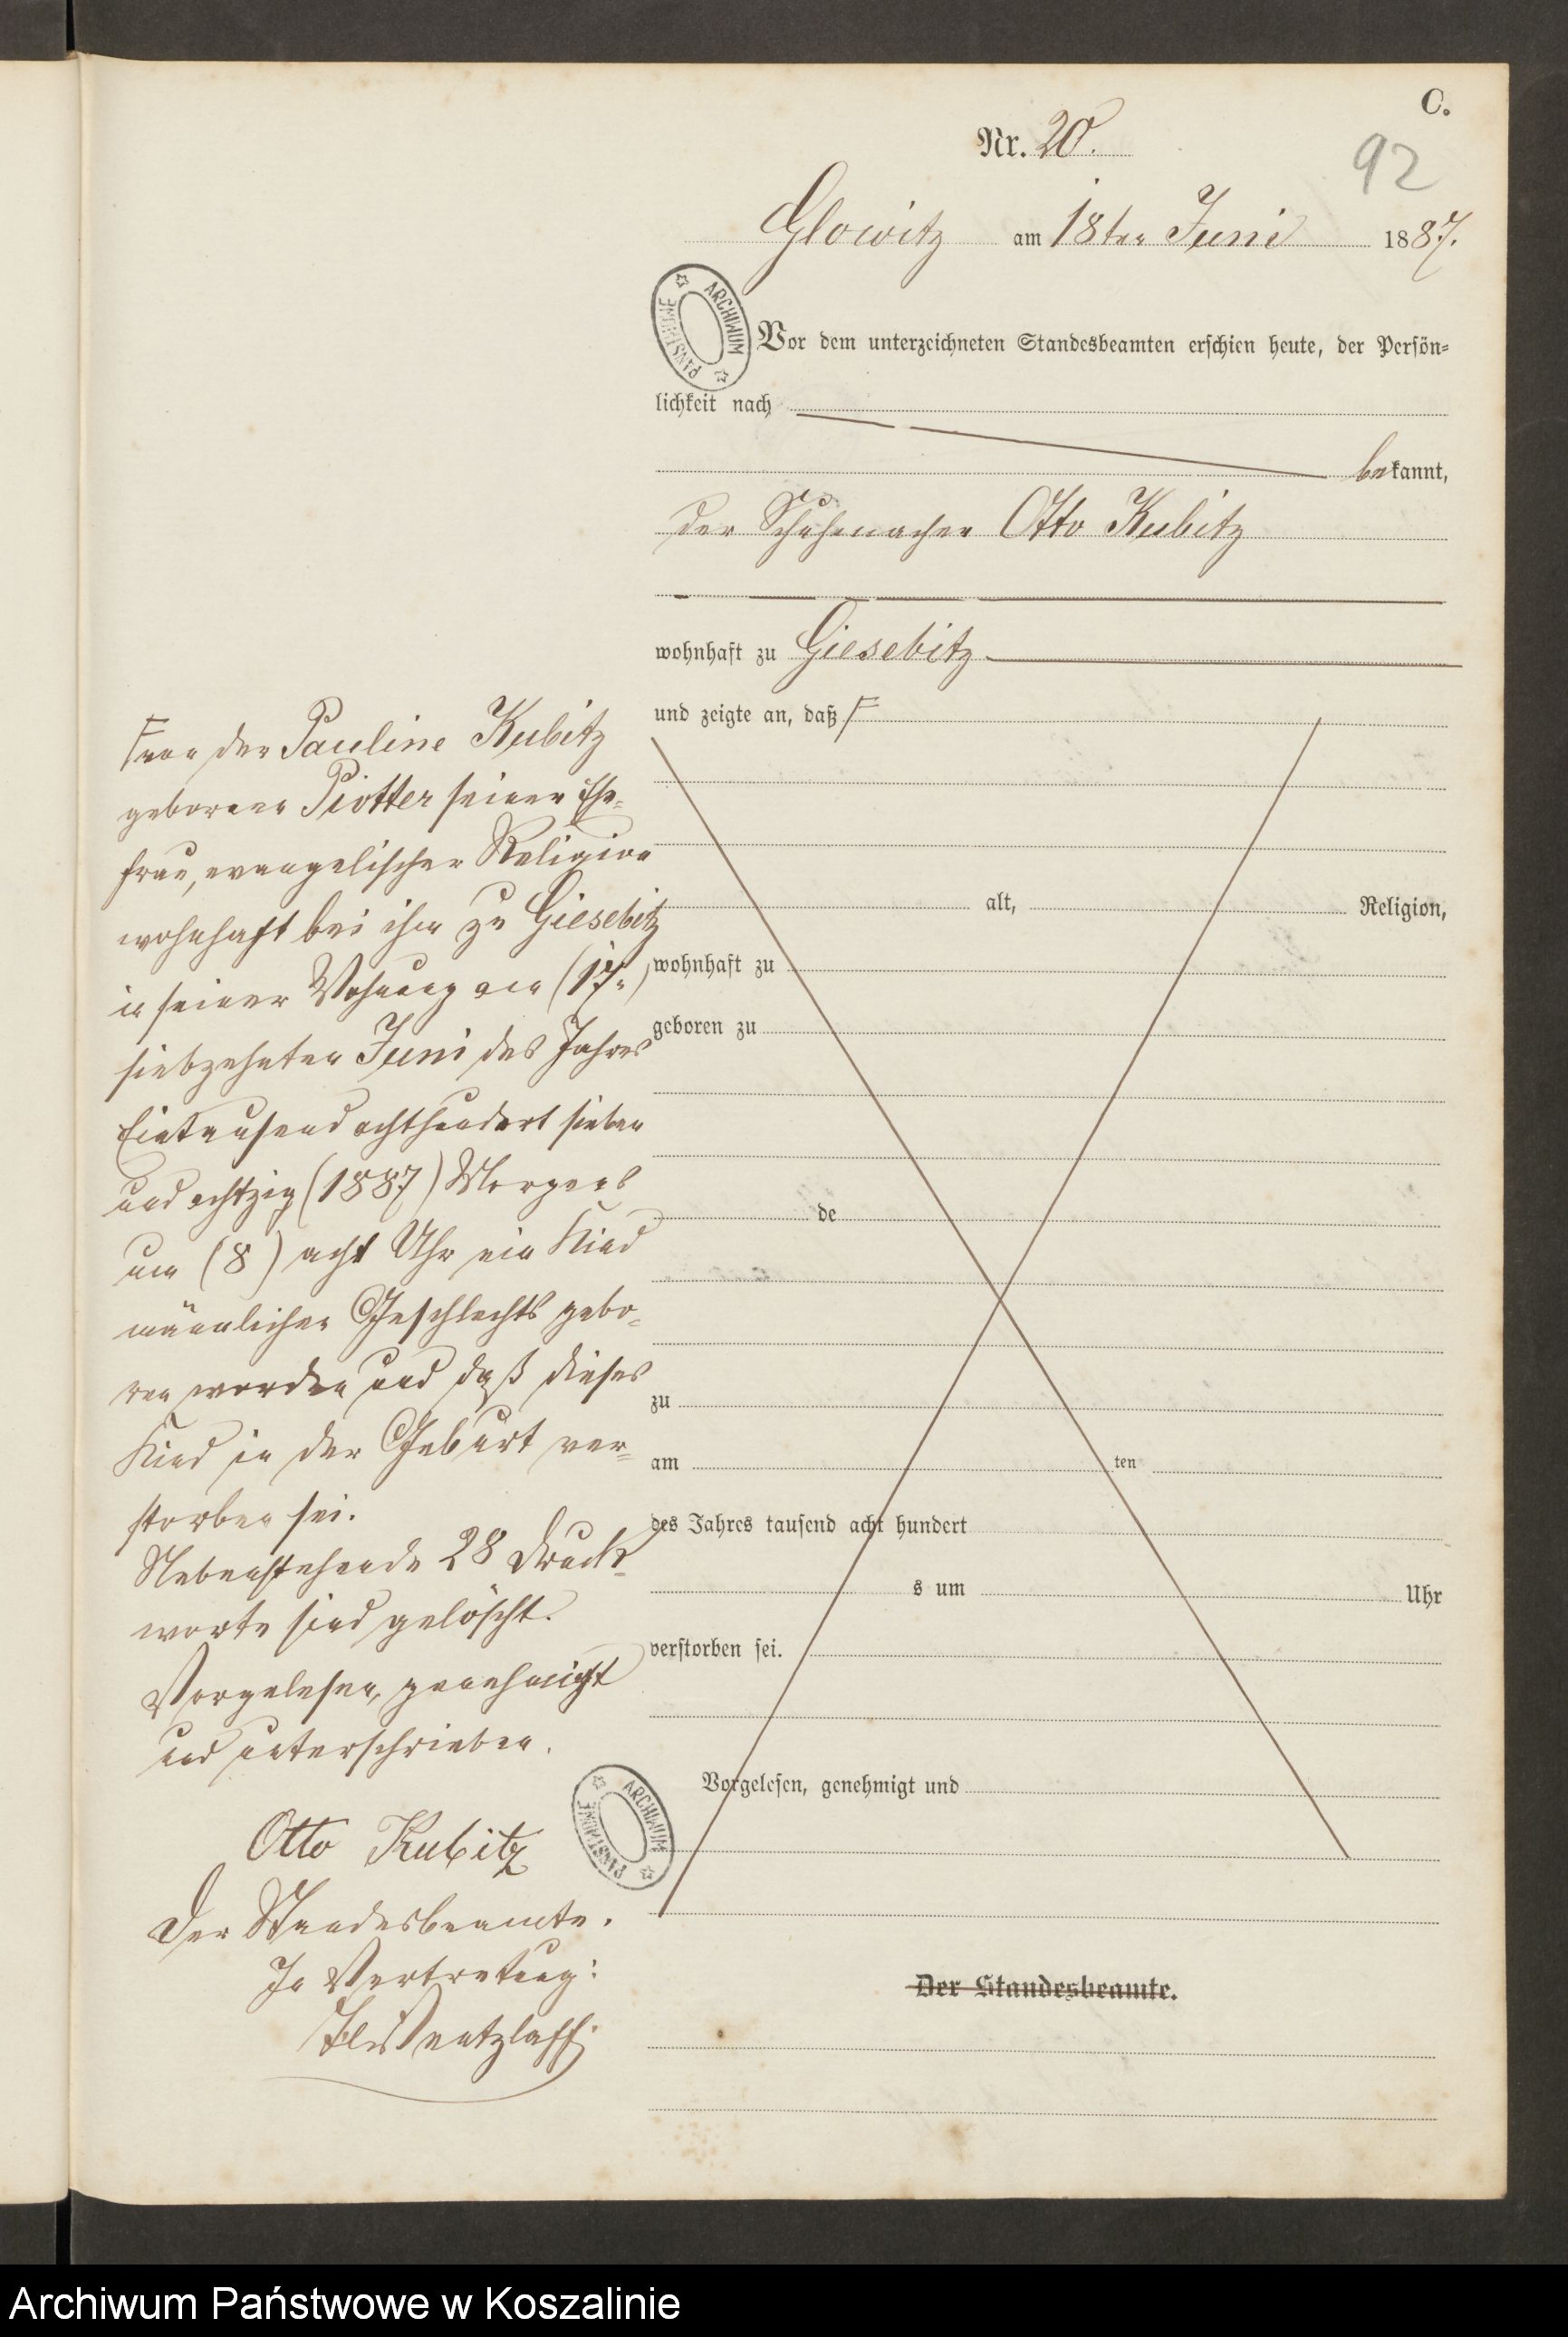 C.
Nr. 20.
92
Glowitz am 18ten Juni 1887.
ARCHIWUM PAŃSTWOWE
Vor dem unterzeichneten Standesbeamten erschien heute, der Persön-
lichkeit nach
bekannt,
der Schuhmacher Otto Kubitz
wohnhaft zu Giesebitz
und zeigte an, daß F
F von der Pauline Kubitz
geborenen Piotter seiner Ehe-
frau, evangelischer Religion
wohnhaft bei ihm zu Giesebitz
in seiner Wohnung am (17.)
siebzehnten Juni des Jahres
Eintausend achthundert sieben
und achtzig (1887) Morgens
um (8) acht Uhr ein Kind
männlichen Geschlechts gebo-
ren worden und daß dieses
Kind in der Geburt ver-
storben sei.
Nebenstehende 28 Druck-
worte sind gelöscht.
Vorgelesen, genehmigt
und unterschrieben.
Otto Kubitz
Der Standesbeamte.
In Vertretung:
alt, Religion,
wohnhaft zu
geboren zu
de
zu
am ten
des Jahres tausend acht hundert
s um Uhr
verstorben sei.
Vorgelesen, genehmigt und
ARCHIWUM PAŃSTWOWE
Der Standesbeamte.
Archiwum Państwowe w Koszalinie